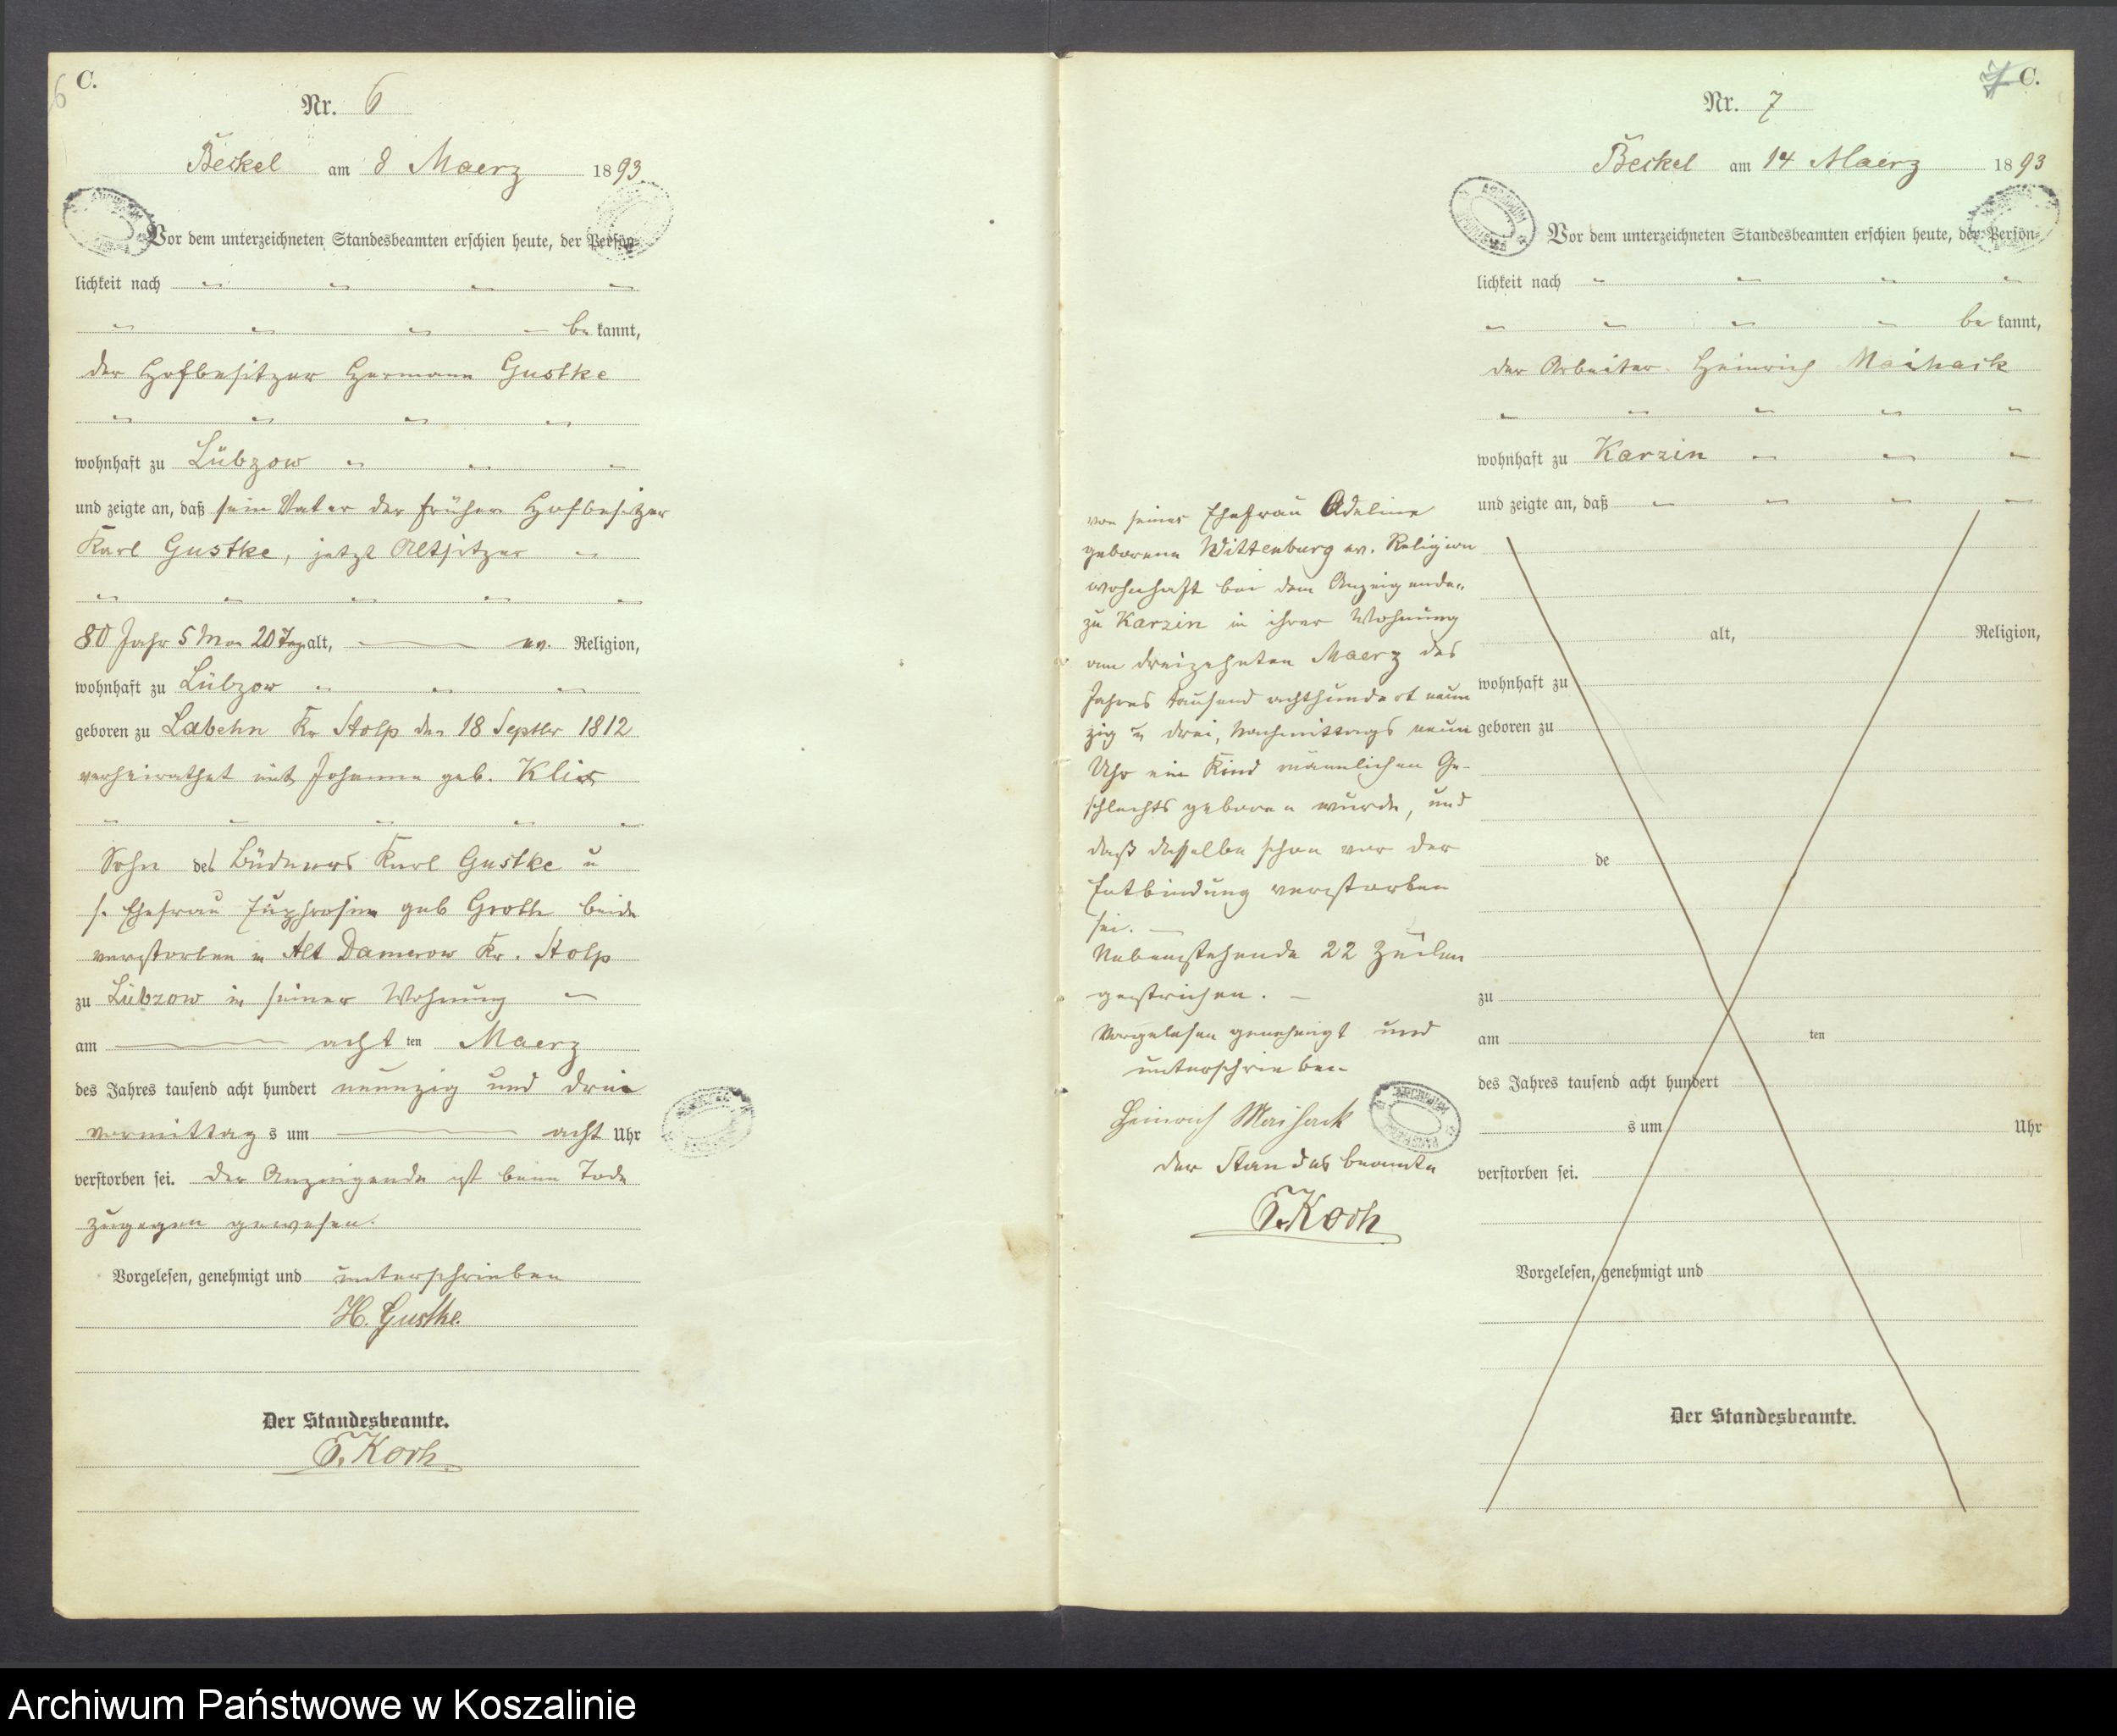 6 C.
Nr. 6
Beckel am 8 Maerz 1893.
Vor dem unterzeichneten Standesbeamten erschien heute, der Persön-
lichkeit nach
be kannt,
der Hofbesitzer Hermann Gustke
wohnhaft zu Lübzow
und zeigte an, daß sein Vater der frühere Hofbesitzer
Karl Gustke, jetzt Altsitzer
80 Jahr 5 Mon 20 Tag alt, ev. Religion,
wohnhaft zu Lübzow
geboren zu Labehn Kr Stolp den 18 Septbr 1812
verheirathet mit Johanne geb.
Sohn des Büdners Karl Gustke u
s. Ehefrau Euphrosine geb Groth beide
verstorben in Alt Damerow Kr. Stolp
zu Lübzow in seiner Wohnung
am acht ten Maerz
des Jahres tausend acht hundert neunzig und drei
vormittag s um acht Uhr
verstorben sei. Der Anzeigende ist beim Tode
zugegen gewesen.
Vorgelesen, genehmigt und unterschrieben
H. Gustke.
Der Standesbeamte.
Koch
7 C.
Nr. 7
Beckel am 14 Maerz 1893
Vor dem unterzeichneten Standesbeamten erschien heute, der Persön-
lichkeit nach
be kannt,
der Arbeiter Heinrich Maihack
wohnhaft zu Karzin
und zeigte an, daß
von seiner Ehefrau Adeline
geborene Wittenburg ev. Religion
wohnhaft bei dem Anzeigenden
zu Karzin in ihrer Wohnung
am dreizehnten Maerz des
Jahres tausend achthundert neun
zig u drei, Nachmittags neun
Uhr ein Kind männlichen Ge-
schlechts geboren wurde, und
daß dasselbe schon vor der
Entbindung verstorben
sei.
Nebenstehende 22 Zeilen
gestrichen.
Vorgelesen genehmigt und
unterschrieben
Heinrich Maihack
der Standesbeamte
Koch
alt, Religion,
wohnhaft zu
geboren zu
de
zu
am ten
des Jahres tausend acht hundert
s um Uhr
verstorben sei.
Vorgelesen, genehmigt und
Der Standesbeamte.
Archiwum Państwowe w Koszalinie